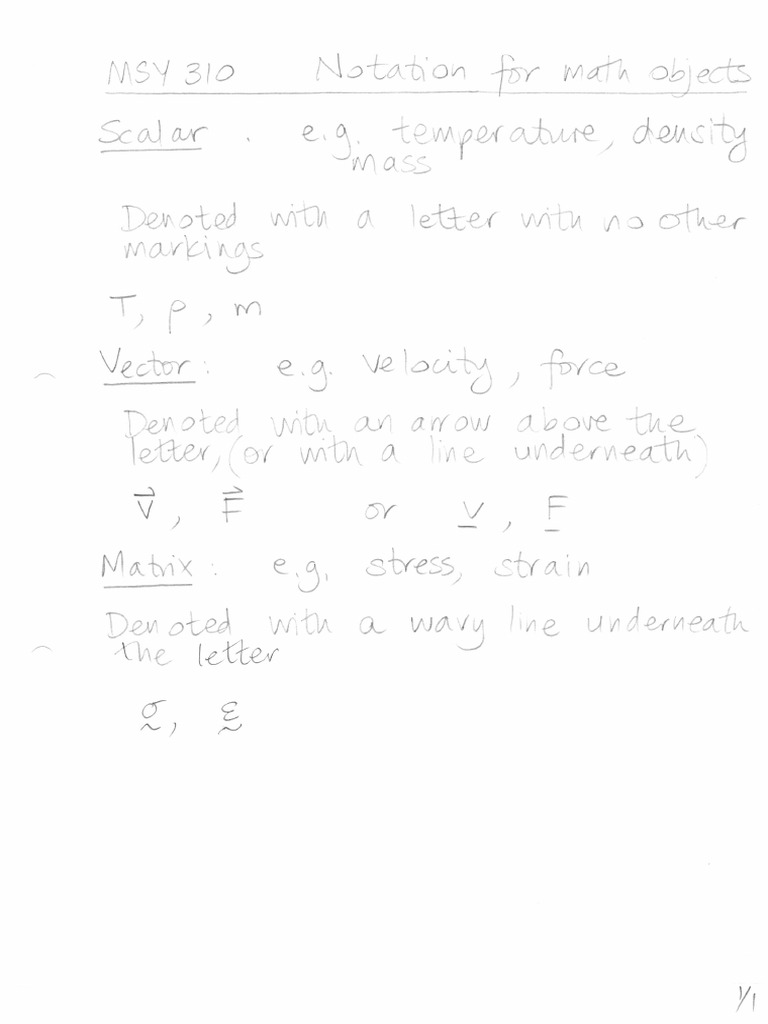 MSY 310 Notation for math objects
Scalar . e.g. temperature, density
mass
Denoted with a letter with no other
markings
T, ρ, m
Vector : e.g. velocity, force
Denoted with an arrow above the
letter, (or with a line underneath)
v⃗, F⃗ or v̲, F̲
Matrix : e.g. stress, strain
Denoted with a wavy line underneath
the letter
σ̰, ε̰
1/1